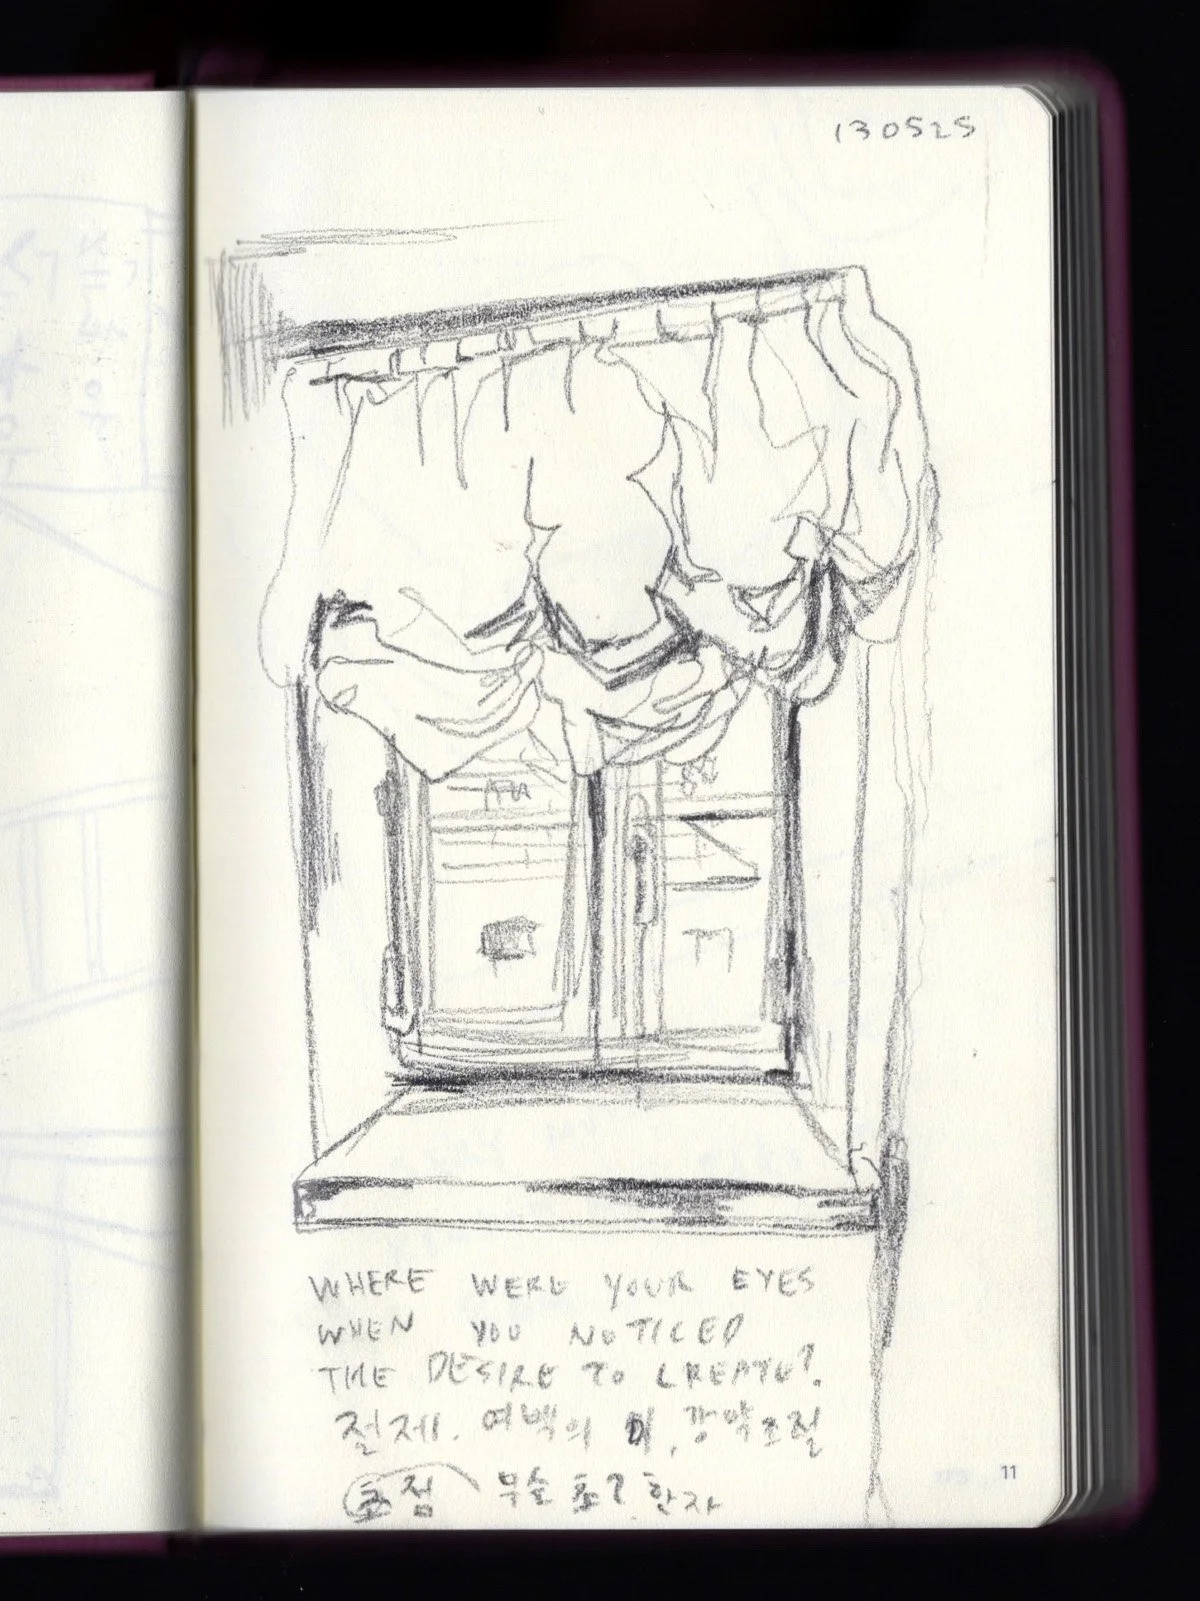 130525
WHERE WERE YOUR EYES
WHEN YOU NOTICED
THE DESIRE TO CREATE?
절제. 여백의 미, 강약조절
초점 무슨 초? 한자
11